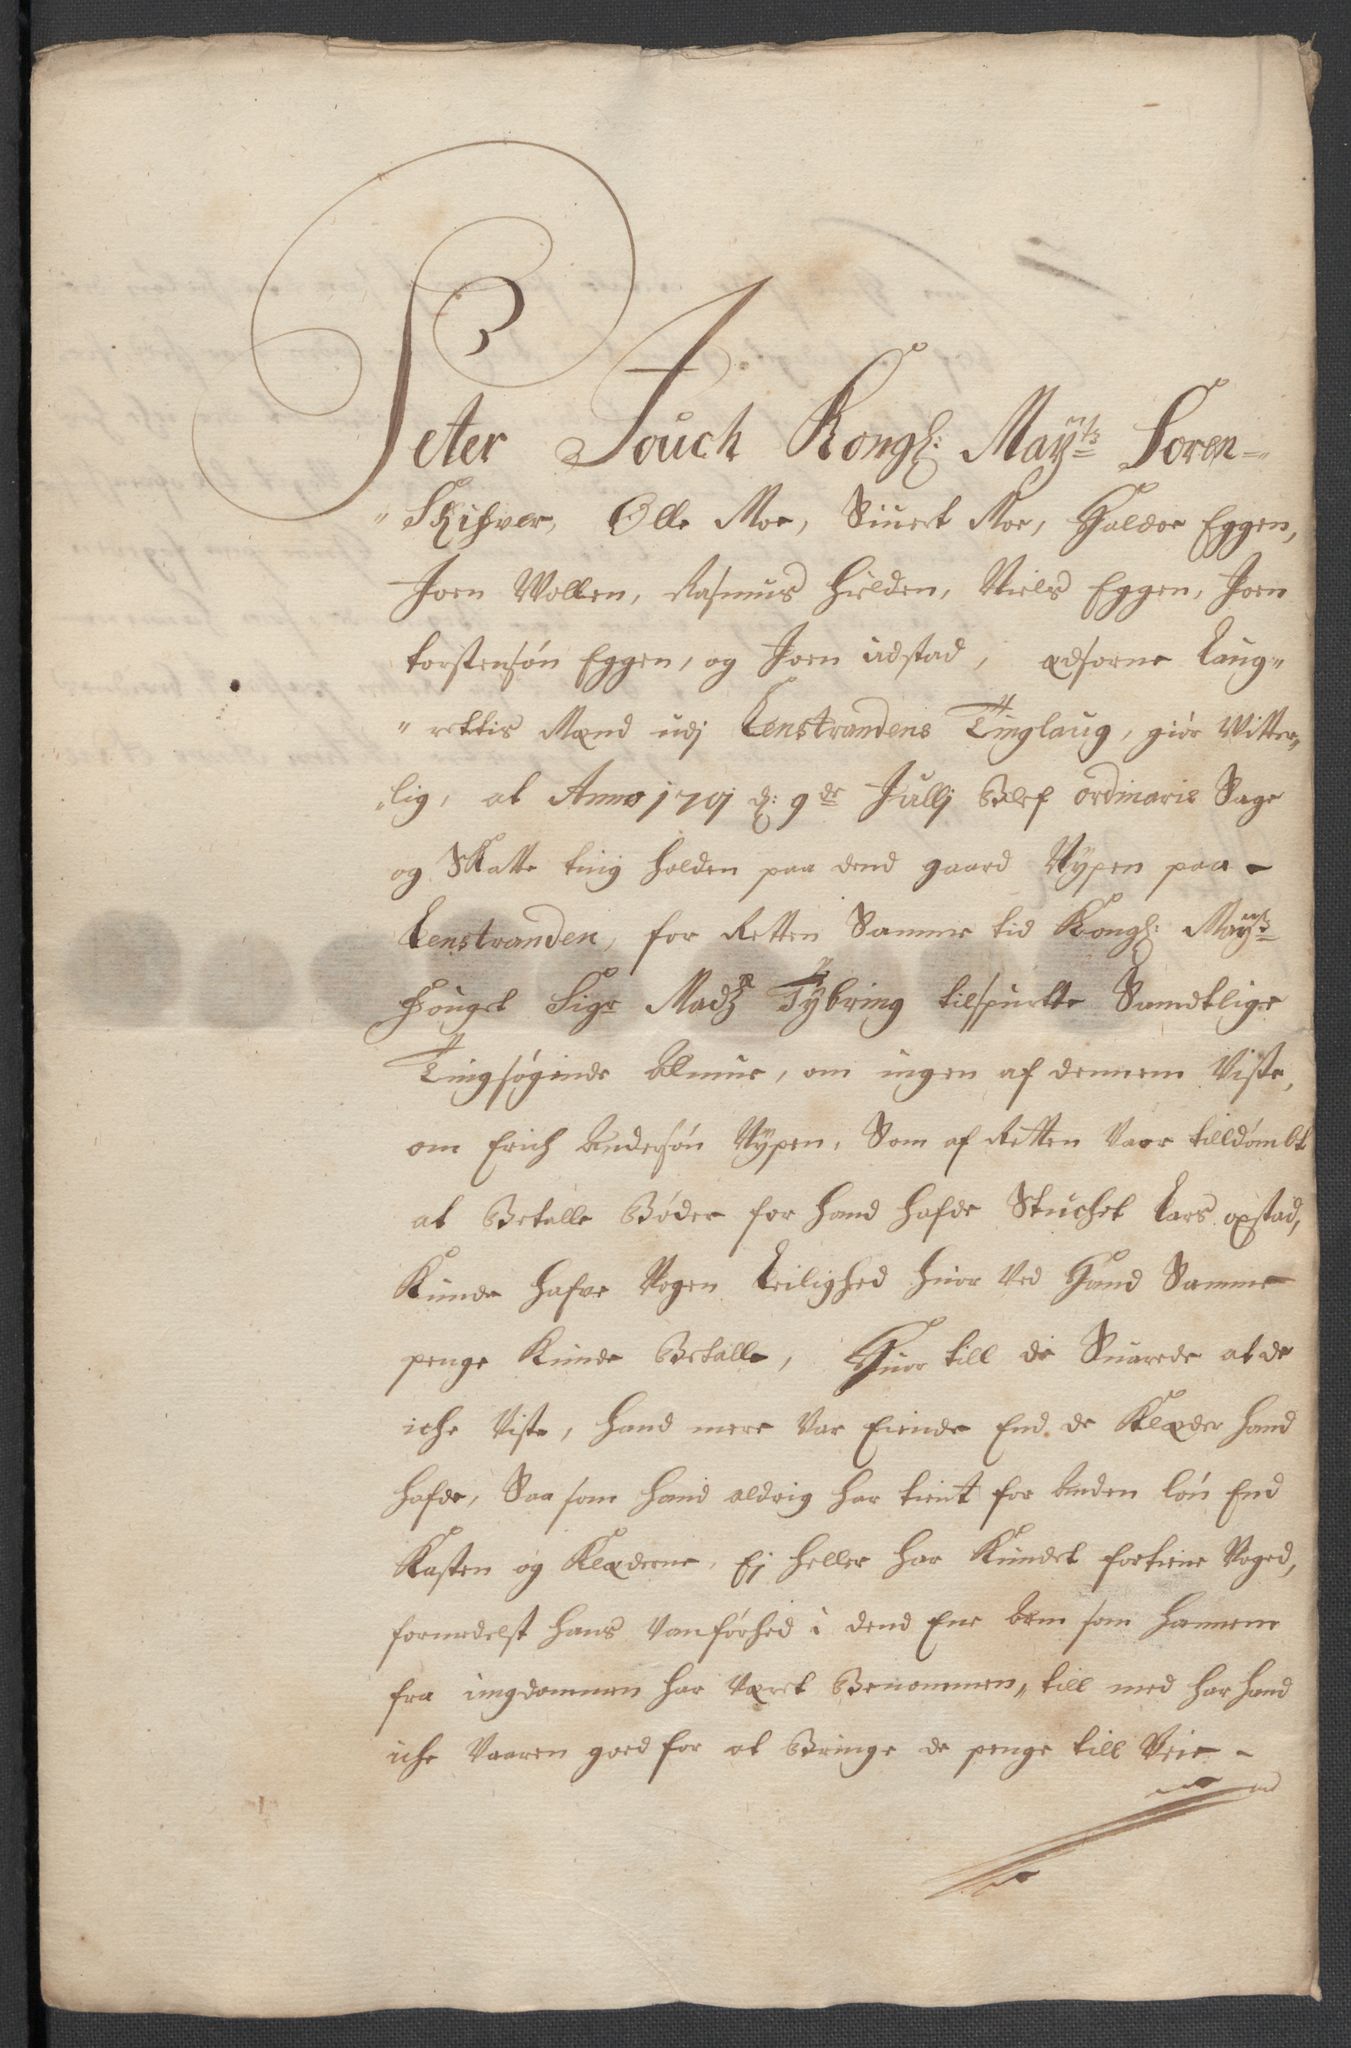 Peter Jouch Kongl: Mayts Soren-
Skifver, Olle Moe, Siuert Moe, Haldor Eggen,
Joen Wollen, Rasmus Hielden, Niels Eggen, Joen
torstensøn Eggen, og Joen udstad, Edsorne Laug-
rettis Mænd udj Lenstrandens Tinglaug, giør Witter-
lig, at Anno 1701 d: 9de Jullj Blef ordinarie Sage
og Skatte ting holden paa dend gaard Nypen paa
Lenstranden, for Retten Samme tid Kongl: Mayts
Fouget Sigr Madz Tybring tilspurtte Samdtlige
Tingsøgende Almue, om ingen af dennem Viste,
om Erich Andersøn Nypen, Som af Retten Vaar tilldømbt
at Betalle Bøder for hand hafde Stuchet Lars opstad,
Kunde hafve Nogen Leilighed huor Ved Hand Samme
penge Kunde Betalle, Huor till de Suarede at de
iche Viste, hand mere Var Eiende End de Klæder hand
hafde, Saa som hand aldrig har tient for Anden løn End
Kosten og Klæderne, Ej heller har Kundet fortiene Noged,
formedelst hans Vanførhed i dend Ene Arm som hannem
fra ungdommen har Været Benommen, till med har hand
iche Vaaren goed for at Bringe de penge till Veie